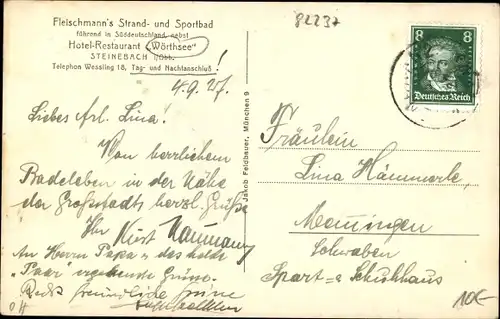 Fleischmann's Strand- und Sportbad
führend in Süddeutschland nebst
Hotel-Restaurant „Wörthsee"
STEINEBACH
Telephon Wessling 18, Tag- und Nachtanschluß!
4.9.27.
Liebes Frl. Lina!
Von herrlichem
Badeleben in der Nähe
der Großstadt herzl. Grüße
Ihr Kurt Naumann
An Herrn Papa
Paar ergebenste Grüße
freundliche Grüsse
Jakob Feldbauer, München 9
82237
8 8
Deutsches Reich
Fräulein
Lina Hämmerle
Schwaben
Sport- & Schuhhaus
10€